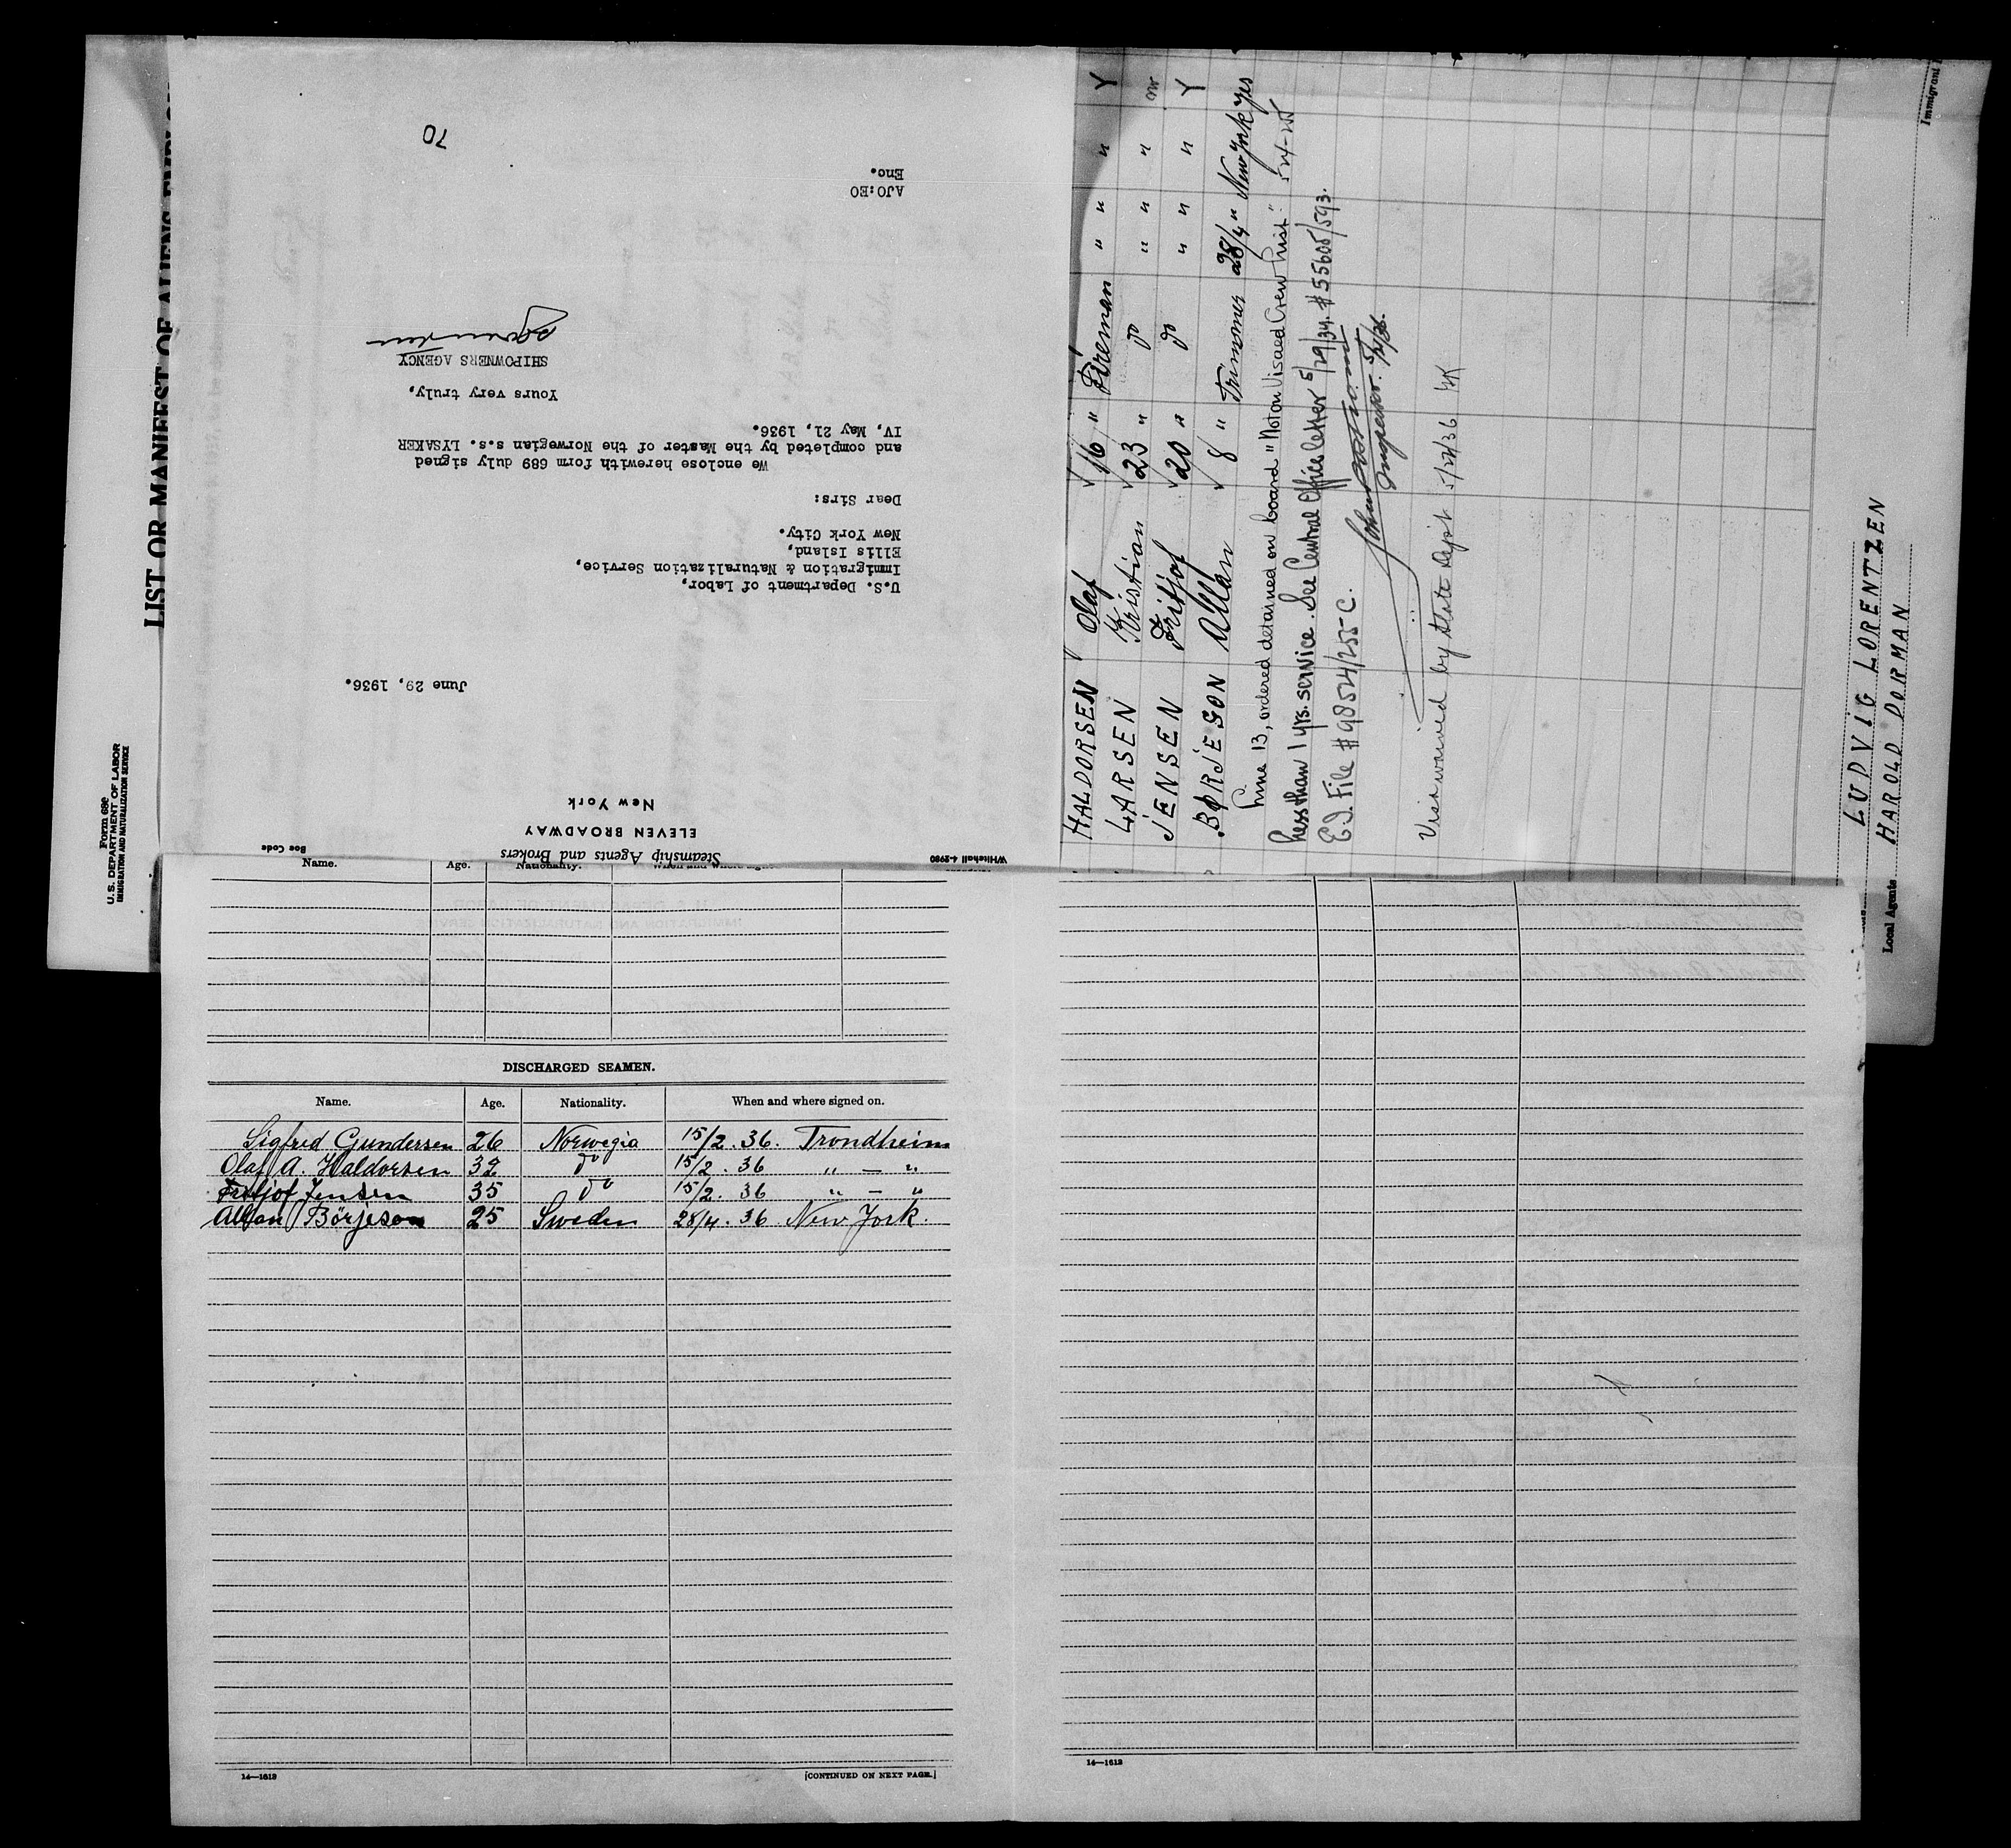 Form 689
U.S. DEPARTMENT OF LABOR
IMMIGRATION AND NATURALIZATION SERVICE
LIST OR MANIFEST OF ALIENS
Steamship Agents and Brokers
ELEVEN BROADWAY
New York
Whitehall 4-2980
Boe Code
June 29, 1936.
U.S. Department of Labor,
Immigration & Naturalization Service,
Ellis Island,
New York City.
Dear Sirs:
We enclose herewith form 689 duly signed
and completed by the Master of the Norwegian s.s. LYSAKER
IV, May 21, 1936.
Yours very truly,
SHIPOWNERS AGENCY
AJO:EO
Enc.
70
HALDORSEN Olaf √16 " Fireman " " " Y
LARSEN Kristian √23 " do " " "
JENSEN Fritjof √20 " do " " " Y
BØRJESON Allan √ 8 " Trimmer 28/4 " New York yes
Line 13, ordered detained on board "Not on Visaed Crew List."
Less than 1 yrs. service. See Central Office letter 5/29/34. #55605/593.
E.I. File #98524/255-C.
Inspector. 5/21/36.
Visa waived by State Dep't 5/21/36
LUDVIG LORENTZEN
Local Agents HAROLD DORMAN
Immigrant
Name. Age. Nationality.
DISCHARGED SEAMEN.
Name. Age. Nationality. When and where signed on.
Sigfred Gundersen 26 Norwegia 15/2. 36. Trondheim
Olaf A. Haldorsen 32 do 15/2. 36 " — "
Fritjof Jensen 35 do 15/2. 36 " — "
Allan Börjeson 25 Sweden 28/4. 36 New York.
14—1612
[CONTINUED ON NEXT PAGE.]
14—1612